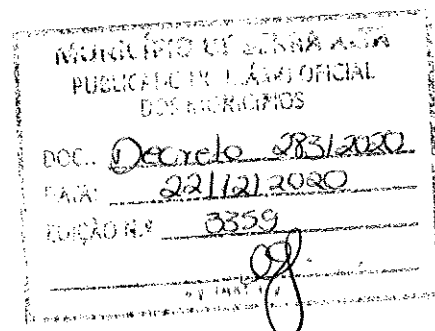 MUNICÍPIO DE SERRA ALTA
PUBLICADO NO DIÁRIO OFICIAL
DOS MUNICÍPIOS
DOC.: Decreto 283/2020
DATA: 22/12/2020
EDIÇÃO N.º 3359